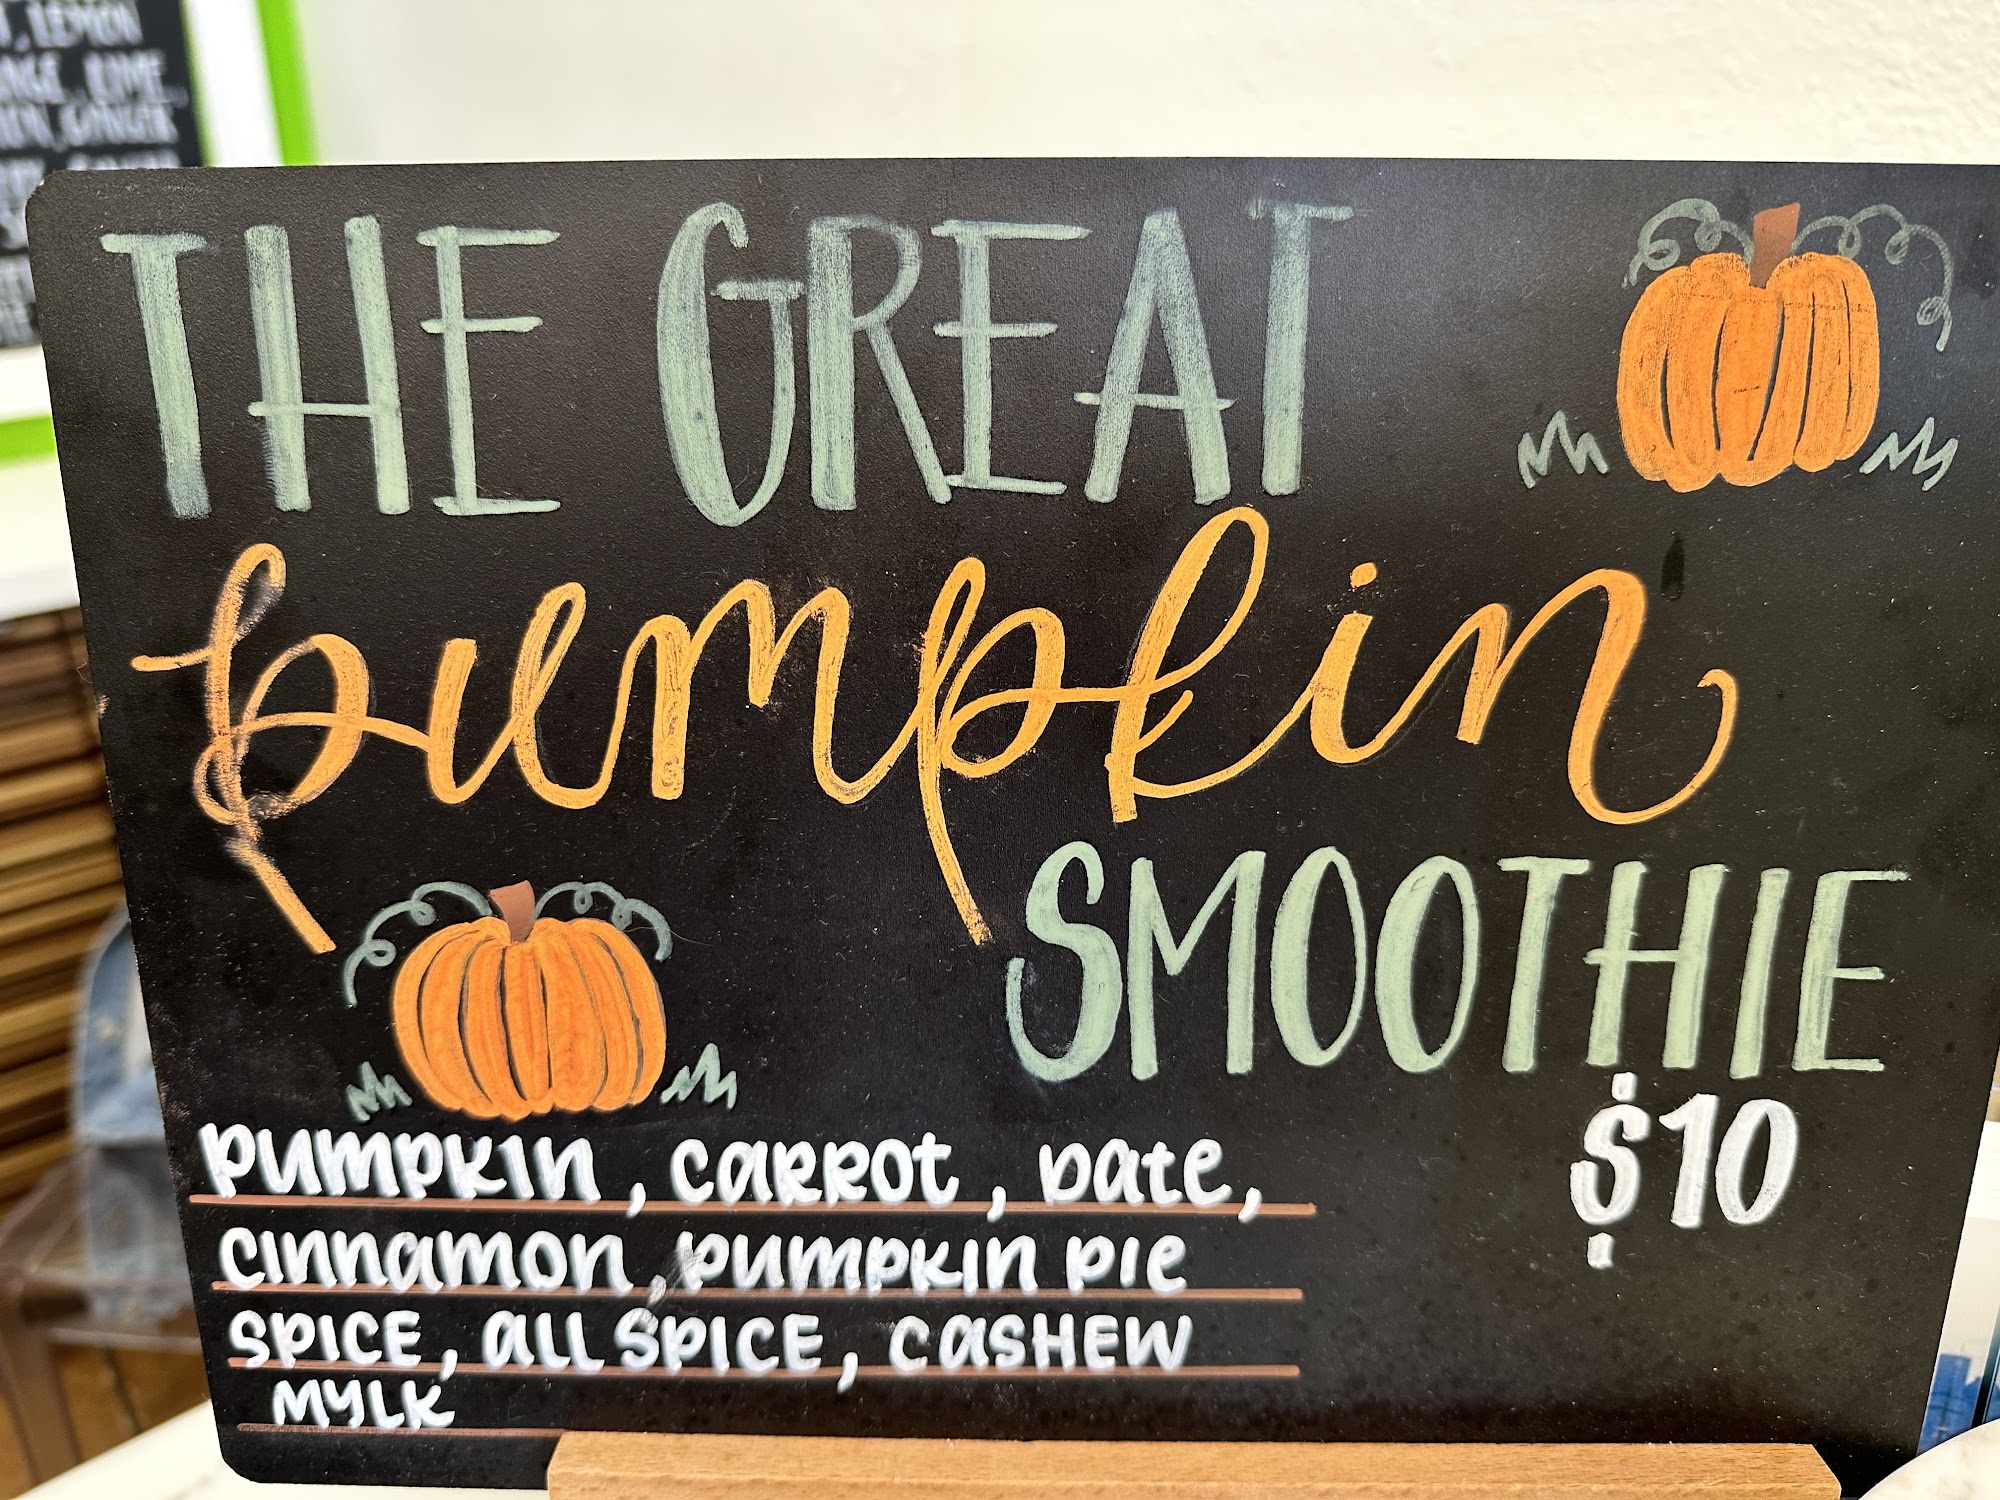 , LEMON
LIME
, GINGER
THE GREAT
pumpkin
SMOOTHIE
$10
PUMPKIN, CARROT, DATE,
CINNAMON, PUMPKIN PIE
SPICE, ALL SPICE, CASHEW
MYLK